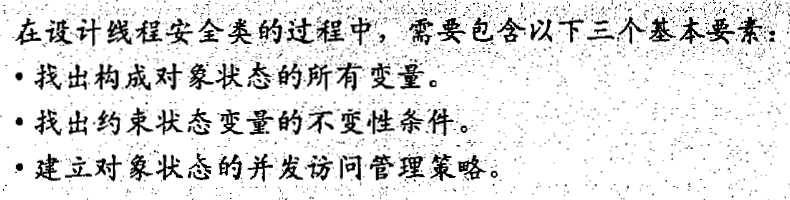 在设计线程安全类的过程中，需要包含以下三个基本要素：
• 找出构成对象状态的所有变量。
• 找出约束状态变量的不变性条件。
• 建立对象状态的并发访问管理策略。